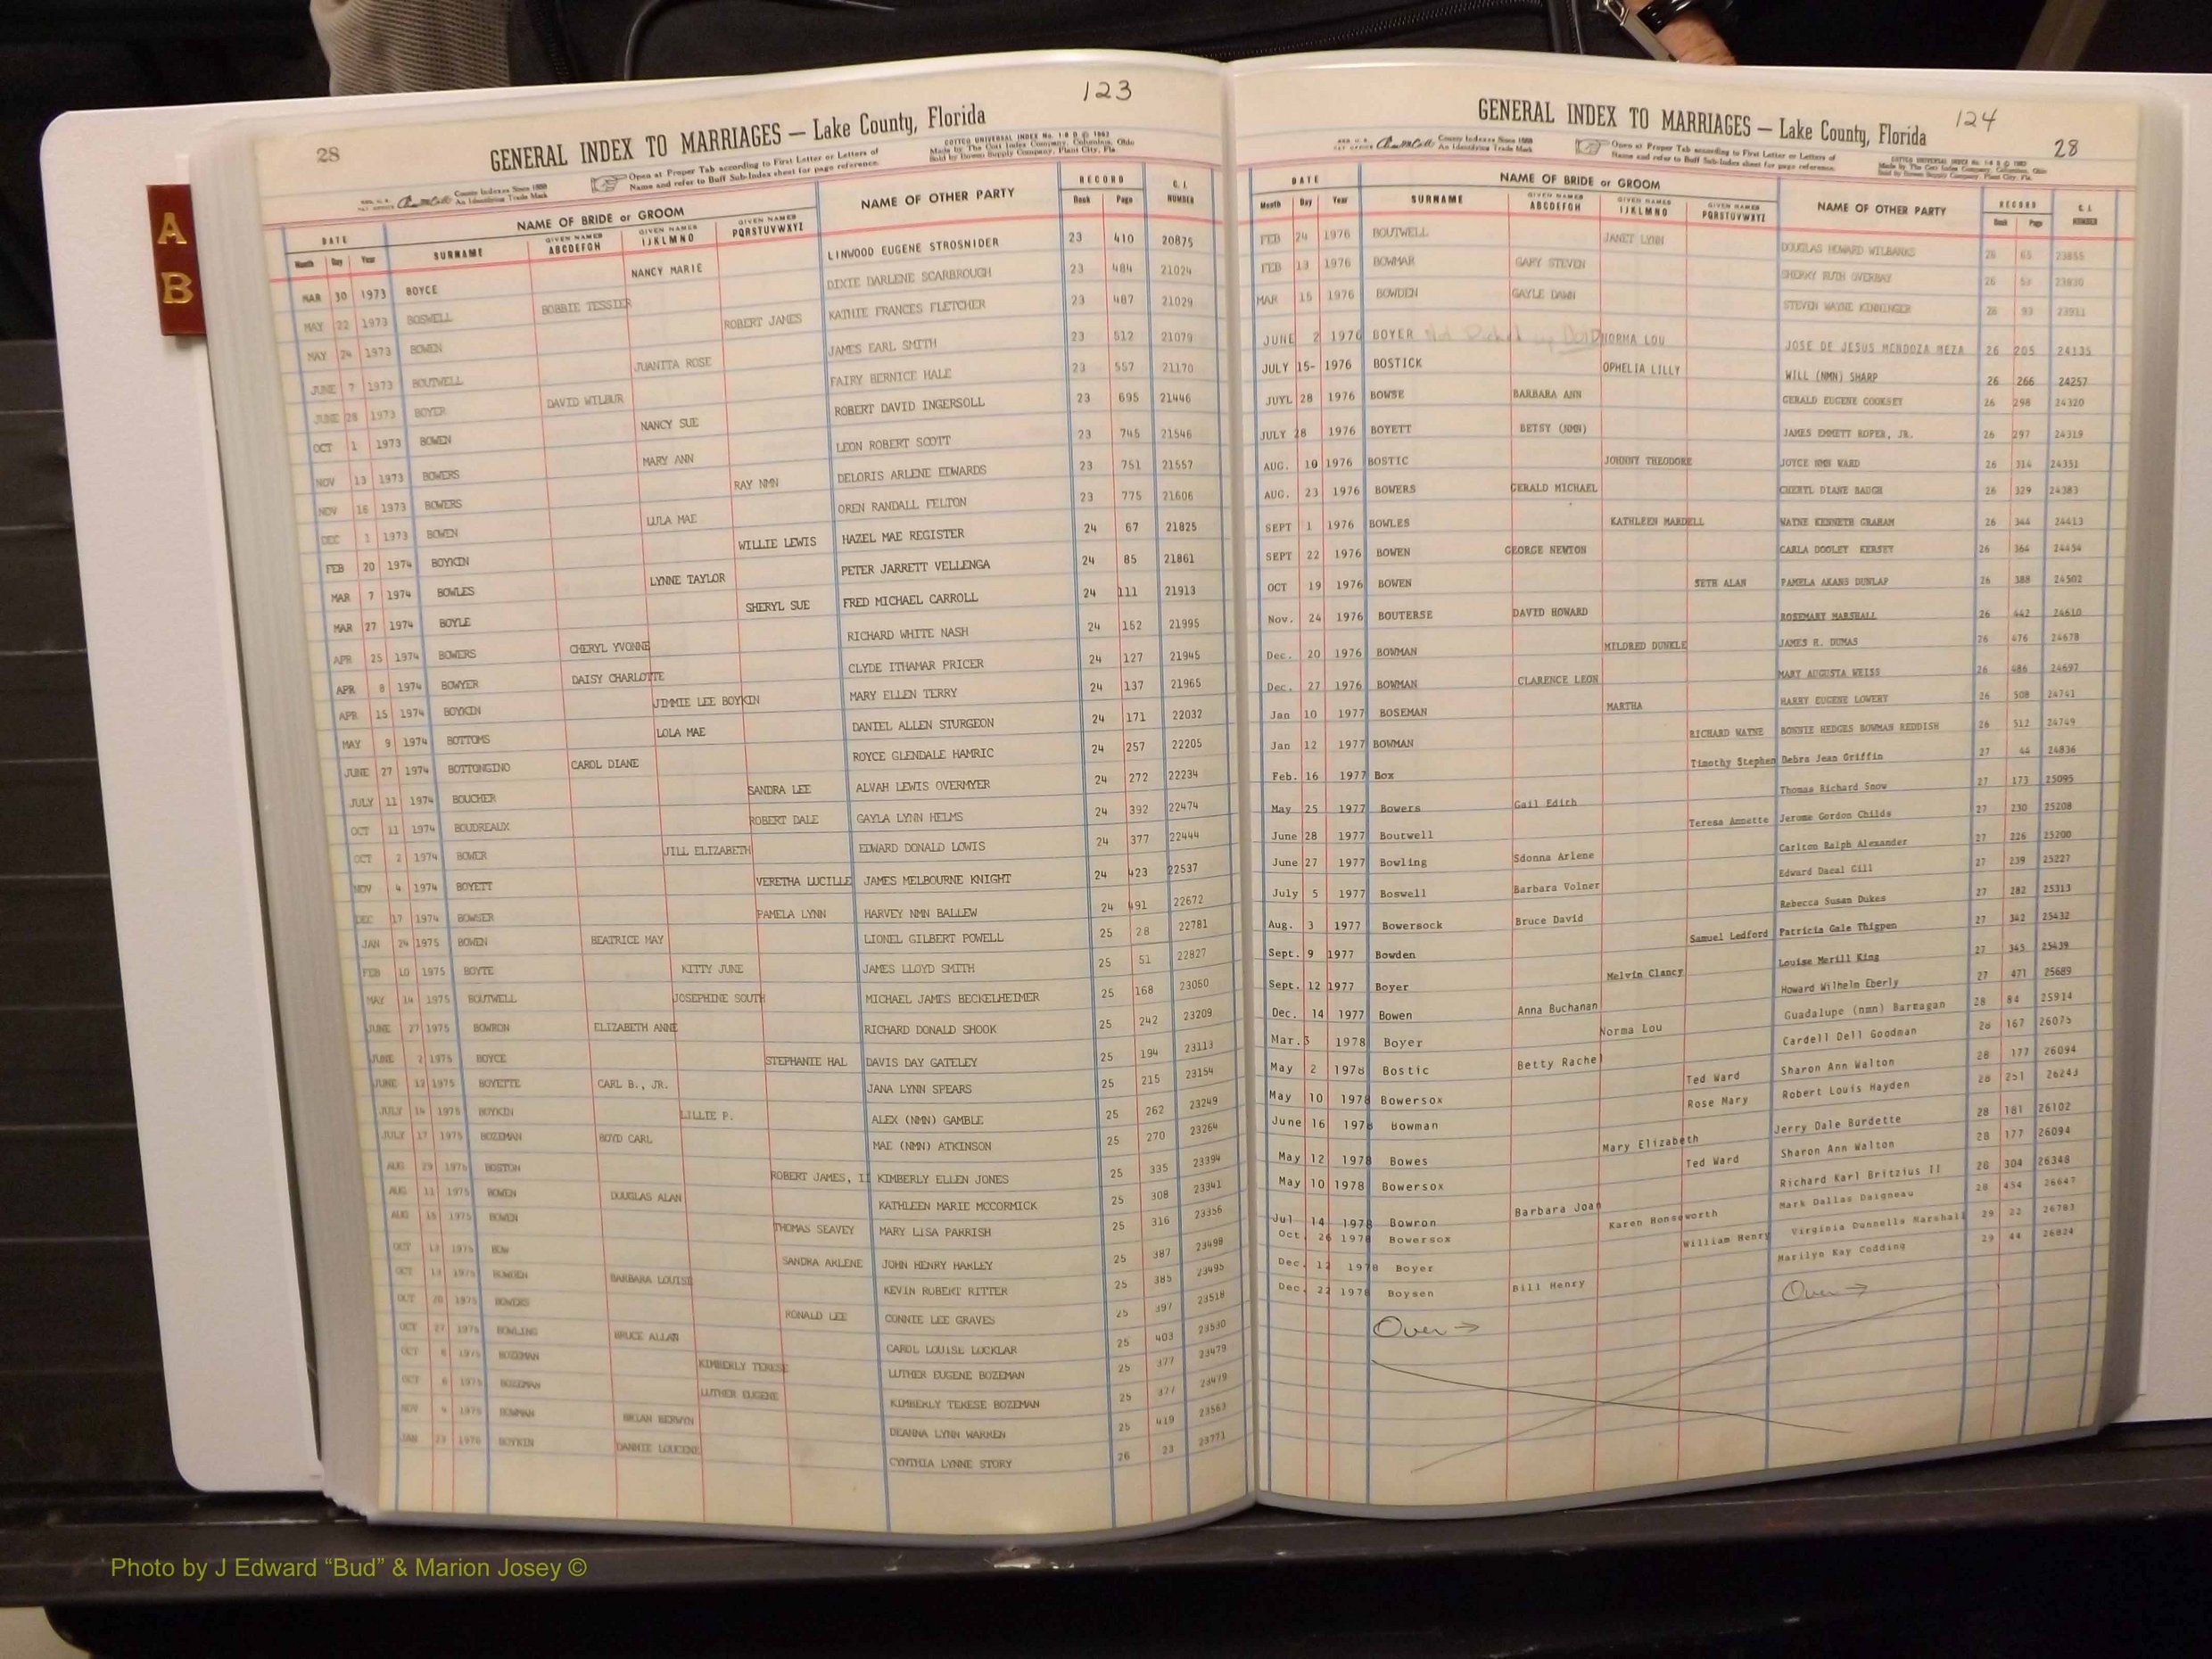 123
28
GENERAL INDEX TO MARRIAGES — Lake County, Florida
County Indexes Since 1888
An Identifying Trade Mark
Open at Proper Tab according to First Letter or Letters of
Name and refer to Buff Sub-Index sheet for page reference.
COTTCO UNIVERSAL INDEX
Made by The Cott Index Company, Columbus, Ohio
Sold by Bowen Supply Company, Plant City, Fla.
DATE NAME OF BRIDE or GROOM NAME OF OTHER PARTY RECORD G. I. NUMBER
Month Day Year SURNAME GIVEN NAMES ABCDEFGH GIVEN NAMES IJKLMNO GIVEN NAMES PQRSTUVWXYZ Book Page
MAR 30 1973 BOYCE NANCY MARIE LINWOOD EUGENE STROSNIDER 23 410 20875
MAY 22 1973 BOSWELL BOBBIE TESSIER DIXIE DARLENE SCARBROUGH 23 484 21024
MAY 24 1973 BOWEN ROBERT JAMES KATHIE FRANCES FLETCHER 23 487 21029
JUNE 7 1973 BOUTWELL JUANITA ROSE JAMES EARL SMITH 23 512 21079
JUNE 28 1973 BOYER DAVID WILBUR FAIRY BERNICE HALE 23 557 21170
OCT 1 1973 BOWEN NANCY SUE ROBERT DAVID INGERSOLL 23 695 21446
NOV 13 1973 BOWERS MARY ANN LEON ROBERT SCOTT 23 745 21546
NOV 16 1973 BOWERS RAY NMN DELORIS ARLENE EDWARDS 23 751 21557
DEC 1 1973 BOWEN LULA MAE OREN RANDALL FELTON 23 775 21606
FEB 20 1974 BOYKIN WILLIE LEWIS HAZEL MAE REGISTER 24 67 21825
MAR 7 1974 BOWLES LYNNE TAYLOR PETER JARRETT VELLENGA 24 85 21861
MAR 27 1974 BOYLE SHERYL SUE FRED MICHAEL CARROLL 24 111 21913
APR 25 1974 BOWERS CHERYL YVONNE RICHARD WHITE NASH 24 152 21995
APR 8 1974 BOWYER DAISY CHARLOTTE CLYDE ITHAMAR PRICER 24 127 21945
APR 15 1974 BOYKIN JIMMIE LEE BOYKIN MARY ELLEN TERRY 24 137 21965
MAY 9 1974 BOTTOMS LOLA MAE DANIEL ALLEN STURGEON 24 171 22032
JUNE 27 1974 BOTTONGINO CAROL DIANE ROYCE GLENDALE HAMRIC 24 257 22205
JULY 11 1974 BOUCHER SANDRA LEE ALVAH LEWIS OVERMYER 24 272 22234
OCT 11 1974 BOUDREAUX ROBERT DALE GAYLA LYNN HELMS 24 392 22474
OCT 2 1974 BOWER JILL ELIZABETH EDWARD DONALD LOWIS 24 377 22444
NOV 4 1974 BOYETT VERETHA LUCILLE JAMES MELBOURNE KNIGHT 24 423 22537
DEC 17 1974 BOWSER PAMELA LYNN HARVEY NMN BALLEW 24 491 22672
JAN 24 1975 BOWEN BEATRICE MAY LIONEL GILBERT POWELL 25 28 22781
FEB 10 1975 BOYTE KITTY JUNE JAMES LLOYD SMITH 25 51 22827
MAY 14 1975 BOUTWELL JOSEPHINE SOUTH MICHAEL JAMES BECKELHEIMER 25 168 23060
JUNE 27 1975 BOWRON ELIZABETH ANNE RICHARD DONALD SHOOK 25 242 23209
JUNE 2 1975 BOYCE STEPHANIE HAL DAVIS DAY GATELEY 25 194 23113
JUNE 12 1975 BOYETTE CARL B., JR. JANA LYNN SPEARS 25 215 23154
JULY 14 1975 BOYKIN LILLIE P. ALEX (NMN) GAMBLE 25 262 23249
JULY 17 1975 BOZEMAN BOYD CARL MAE (NMN) ATKINSON 25 270 23264
AUG 29 1975 BOSTON ROBERT JAMES, II KIMBERLY ELLEN JONES 25 335 23394
AUG 11 1975 BOWEN DOUGLAS ALAN KATHLEEN MARIE MCCORMICK 25 308 23341
AUG 15 1975 BOWEN THOMAS SEAVEY MARY LISA PARRISH 25 316 23356
OCT 13 1975 BOW SANDRA ARLENE JOHN HENRY HARLEY 25 387 23498
OCT 13 1975 BOWDEN BARBARA LOUISE KEVIN ROBERT RITTER 25 385 23495
OCT 20 1975 BOWERS RONALD LEE CONNIE LEE GRAVES 25 397 23518
OCT 27 1975 BOWLING BRUCE ALLAN CAROL LOUISE LOCKLAR 25 403 23530
OCT 8 1975 BOZEMAN KIMBERLY TERESE LUTHER EUGENE BOZEMAN 25 377 23479
OCT 1975 BOZEMAN LUTHER EUGENE KIMBERLY TERESE BOZEMAN 25 377 23479
NOV 1975 BOWMAN BRIAN BERWYN DEANNA LYNN WARREN 25 419 23563
JAN 23 1976 BOYKIN DANNIE LOUCENE CYNTHIA LYNNE STORY 26 23 23771
124
28
GENERAL INDEX TO MARRIAGES — Lake County, Florida
County Indexes Since 1888
An Identifying Trade Mark
Open at Proper Tab according to First Letter or Letters of
Name and refer to Buff Sub-Index sheet for page reference.
Made by The Cott Index Company, Columbus, Ohio
Sold by Bowen Supply Company, Plant City, Fla.
DATE NAME OF BRIDE or GROOM NAME OF OTHER PARTY RECORD G. I. NUMBER
Month Day Year SURNAME GIVEN NAMES ABCDEFGH GIVEN NAMES IJKLMNO GIVEN NAMES PQRSTUVWXYZ Book Page
FEB 24 1976 BOUTWELL JANET LYNN DOUGLAS HOWARD WILBANKS 26 65 23855
FEB 13 1976 BOWMAR GARY STEVEN SHERRY RUTH OVERBAY 26 23830
MAR 15 1976 BOWDEN GAYLE DAWN STEVEN WAYNE KENNINGER 26 93 23911
JUNE 2 1976 BOYER NORMA LOU JOSE DE JESUS MENDOZA MEZA 26 205 24135
JULY 15- 1976 BOSTICK OPHELIA LILLY WILL (NMN) SHARP 26 266 24257
JUYL 28 1976 BOWSE BARBARA ANN GERALD EUGENE COOKSEY 26 298 24320
JULY 28 1976 BOYETT BETSY (NMN) JAMES EMMETT ROPER, JR. 26 297 24319
AUG. 10 1976 BOSTIC JOHNNY THEODORE JOYCE NMN WARD 26 314 24351
AUG. 23 1976 BOWERS GERALD MICHAEL CHERYL DIANE BAUGH 26 329 24383
SEPT 1 1976 BOWLES KATHLEEN MARDELL WAYNE KENNETH GRAHAM 26 344 24413
SEPT 22 1976 BOWEN GEORGE NEWTON CARLA DOOLEY KERSEY 26 364 24454
OCT 19 1976 BOWEN SETH ALAN PAMELA AKANS DUNLAP 26 388 24502
Nov. 24 1976 BOUTERSE DAVID HOWARD ROSEMARY MARSHALL 26 442 24610
Dec. 20 1976 BOWMAN MILDRED DUNKLE JAMES H. DUMAS 26 476 24678
Dec. 27 1976 BOWMAN CLARENCE LEON MARY AUGUSTA WEISS 26 486 24697
Jan 10 1977 BOSEMAN MARTHA HARRY EUGENE LOWERY 26 508 24741
Jan 12 1977 BOWMAN RICHARD WAYNE BONNIE HEDGES BOWMAN REDDISH 26 512 24749
Feb. 16 1977 Box Timothy Stephen Debra Jean Griffin 27 44 24836
May 25 1977 Bowers Gail Edith Thomas Richard Snow 27 173 25095
June 28 1977 Boutwell Teresa Annette Jerome Gordon Childs 27 230 25208
June 27 1977 Bowling Sdonna Arlene Carlton Ralph Alexander 27 226 25200
July 5 1977 Boswell Barbara Volner Edward Dacal Gill 27 239 25227
Aug. 3 1977 Bowersock Bruce David Rebecca Susan Dukes 27 282 25313
Sept. 9 1977 Bowden Samuel Ledford Patricia Gale Thigpen 27 342 25432
Sept. 12 1977 Boyer Melvin Clancy Louise Merill King 27 345 25439
Dec. 14 1977 Bowen Anna Buchanan Howard Wilhelm Eberly 27 471 25689
Mar. 3 1978 Boyer Norma Lou Guadalupe (nmn) Barragan 28 84 25914
May 2 1978 Bostic Betty Rachel Cardell Dell Goodman 28 167 26075
May 10 1978 Bowersox Ted Ward Sharon Ann Walton 28 177 26094
June 16 1978 Bowman Rose Mary Robert Louis Hayden 28 251 26243
May 12 1978 Bowes Mary Elizabeth Jerry Dale Burdette 28 181 26102
May 10 1978 Bowersox Ted Ward Sharon Ann Walton 28 177 26094
Jul 14 1978 Bowron Barbara Joan Richard Karl Britzius II 28 304 26348
Oct. 26 1978 Bowersox Karen Honsworth Mark Dallas Daigneau 28 454 26647
Dec. 12 1978 Boyer William Henry Virginia Dunnelle Marshall 29 22 26783
Dec. 22 1978 Boysen Bill Henry Marilyn Kay Codding 29 44 26824
Over → Over →
A
B
Photo by J Edward “Bud” & Marion Josey ©